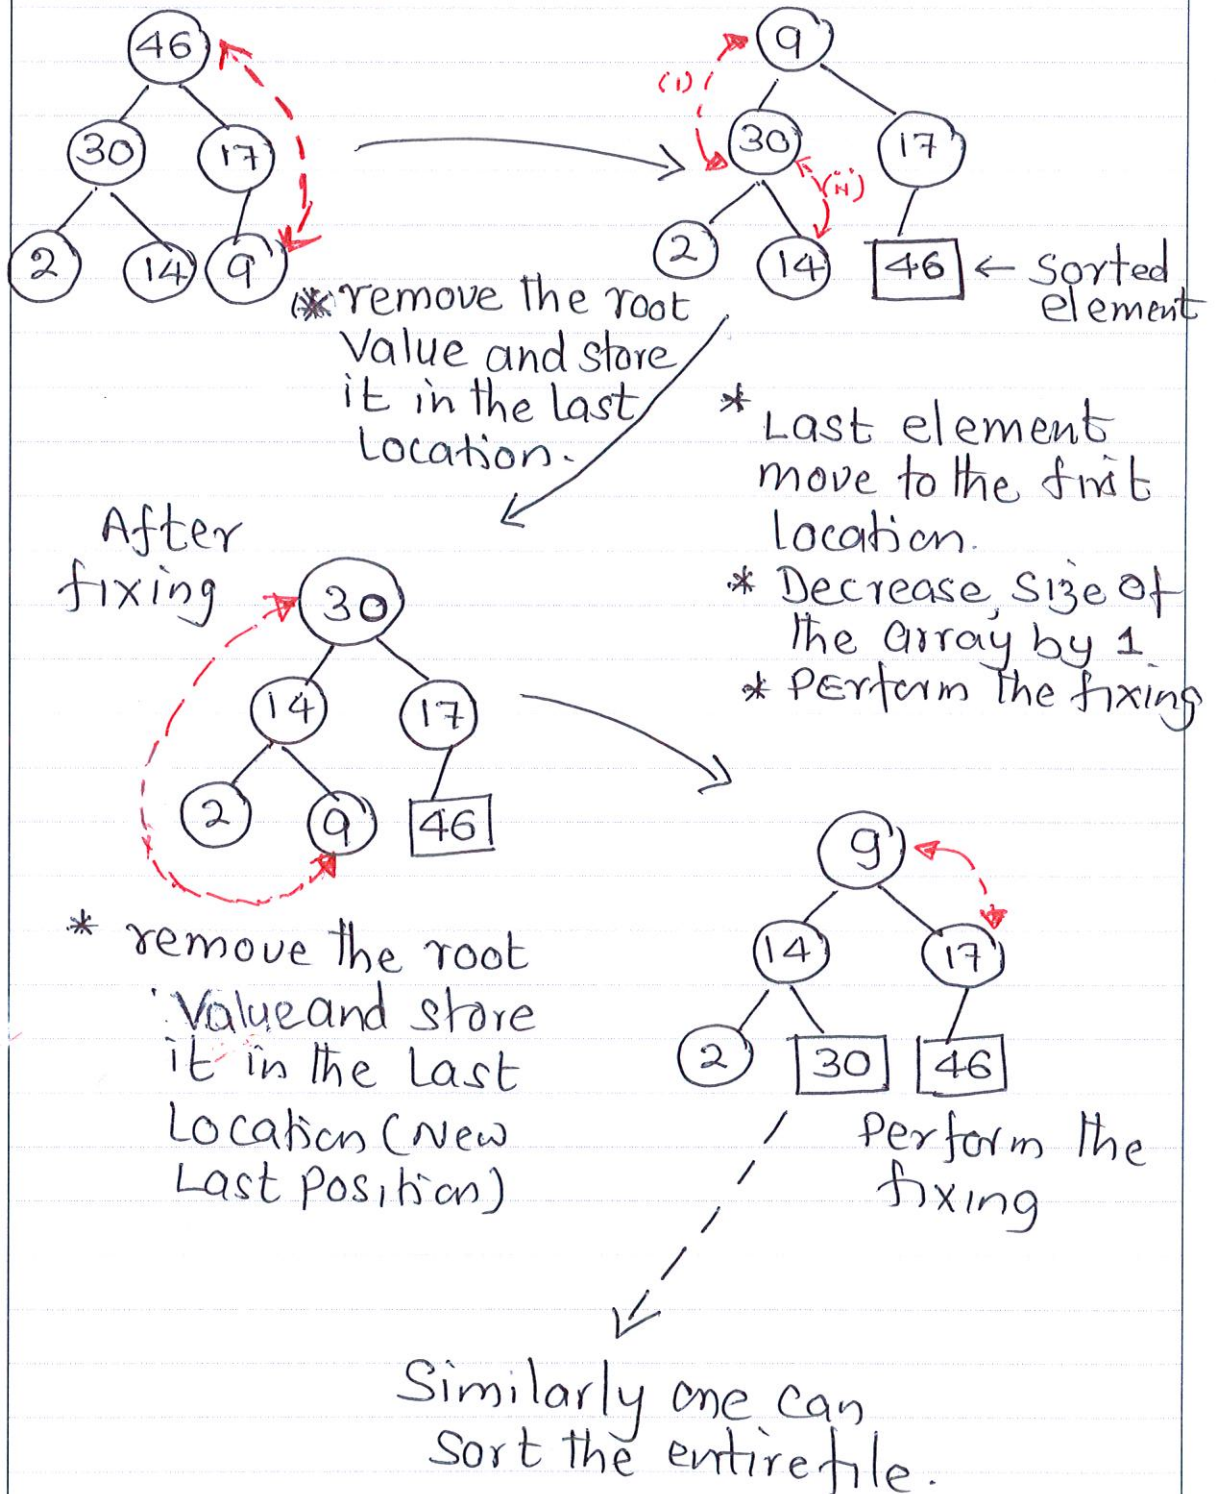 46
30
17
2
14
9
9
(i)
30
17
(ii)
2
14
46 ← Sorted
element
* remove the root
Value and store
it in the Last
Location.
* Last element
move to the first
Location.
* Decrease size of
the array by 1.
* PErform the fixing
After
fixing
30
14
17
2
9
46
* remove the root
Value and store
it in the Last
Location (New
Last Position)
9
14
17
2
30
46
Perform the
fixing
Similarly one can
Sort the entire file.